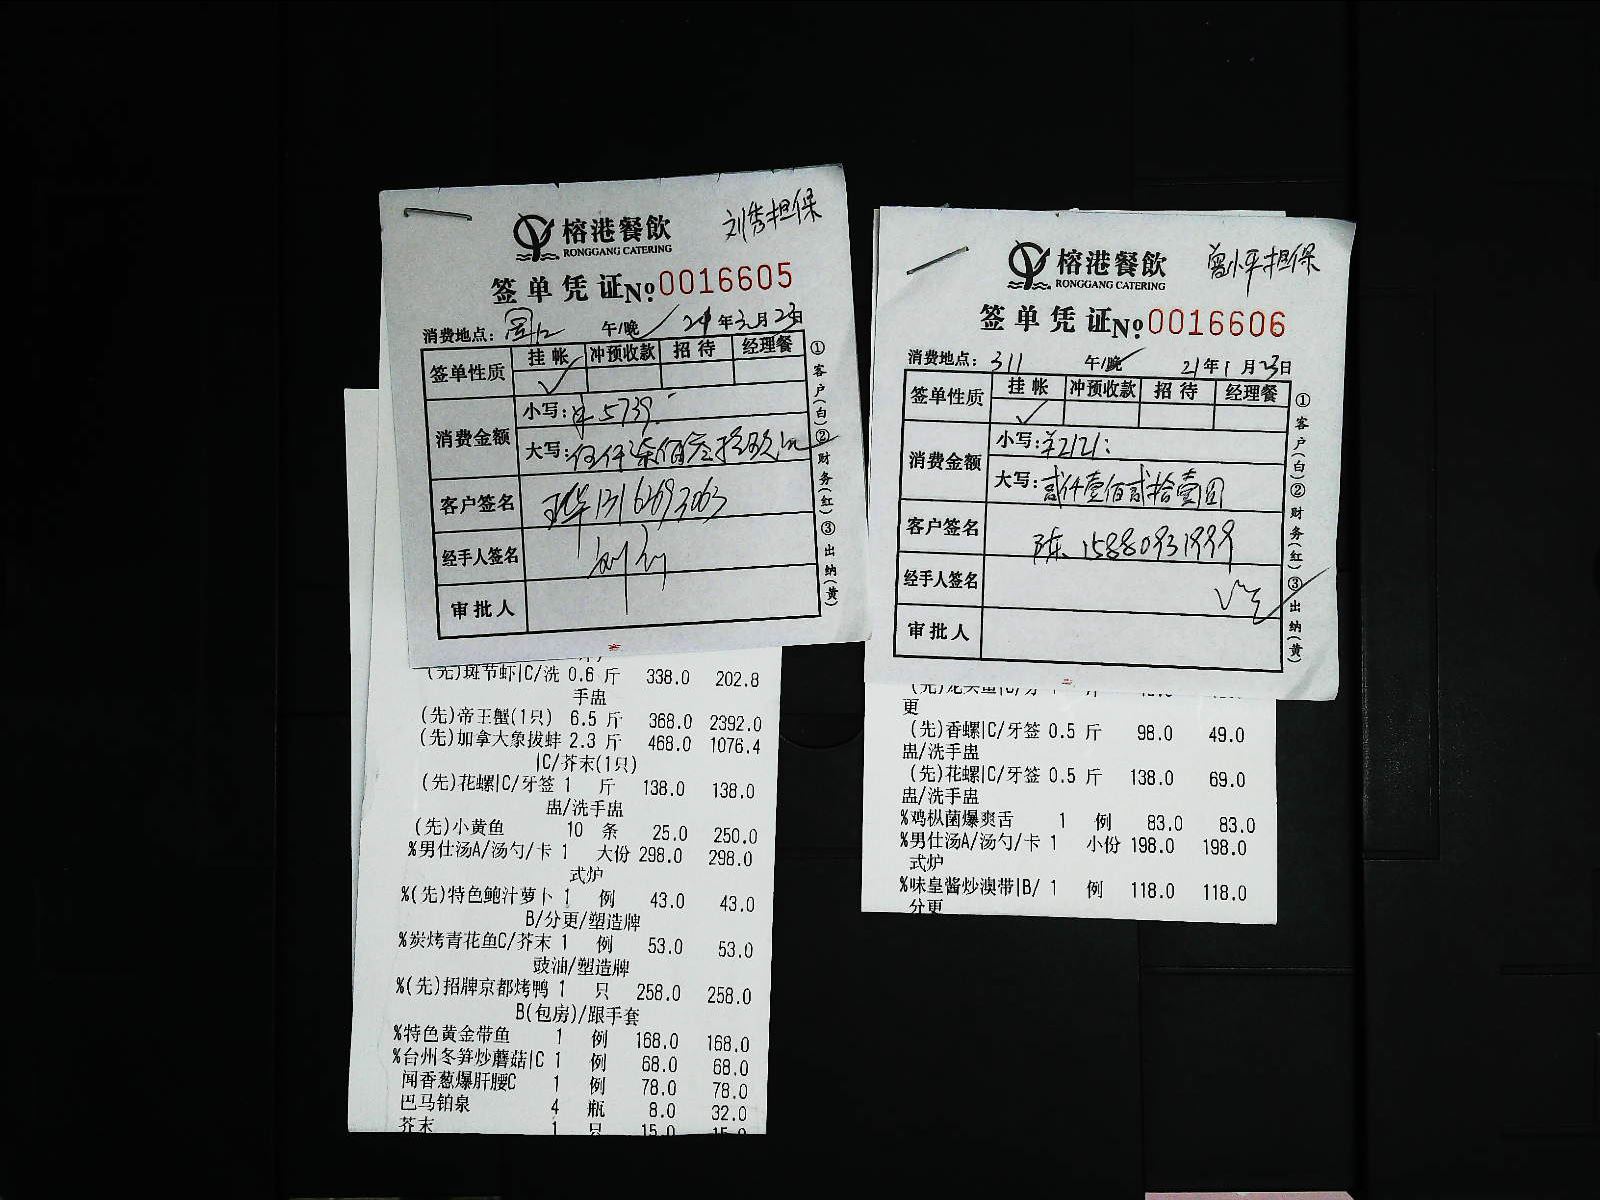 刘秀担保
榕港餐飲
RONGGANG CATERING
签单凭证No.0016605
消费地点: 午/晚 21年1月23日
签单性质 挂帐 冲预收款 招待 经理餐
✓
消费金额
小写:¥5739.
大写:伍仟柒佰叁拾玖元
客户签名 13162693063
经手人签名
审批人
①客户(白)②财务(红)③出纳(黄)
(先)斑节虾|C/洗 0.6 斤 338.0 202.8
手盅
(先)帝王蟹(1只) 6.5 斤 368.0 2392.0
(先)加拿大象拔蚌 2.3 斤 468.0 1076.4
|C/芥末(1只)
(先)花螺|C/牙签 1 斤 138.0 138.0
盅/洗手盅
(先)小黄鱼 10 条 25.0 250.0
%男仕汤A/汤勺/卡 1 大份 298.0 298.0
式炉
%(先)特色鲍汁萝卜 1 例 43.0 43.0
B/分更/塑造牌
%炭烤青花鱼C/芥末 1 例 53.0 53.0
豉油/塑造牌
%(先)招牌京都烤鸭 1 只 258.0 258.0
B(包房)/跟手套
%特色黄金带鱼 1 例 168.0 168.0
%台州冬笋炒蘑菇|C 1 例 68.0 68.0
闻香葱爆肝腰C 1 例 78.0 78.0
巴马铂泉 4 瓶 8.0 32.0
芥末 1 只 15.0 15.0
曾小平担保
榕港餐飲
RONGGANG CATERING
签单凭证No.0016606
消费地点:311 午/晚 21年1月23日
签单性质 挂帐 冲预收款 招待 经理餐
✓
消费金额
小写:¥2121:
大写:贰仟壹佰贰拾壹圆
客户签名 陈 15880931999
经手人签名
审批人
①客户(白)②财务(红)③出纳(黄)
更
(先)香螺|C/牙签 0.5 斤 98.0 49.0
盅/洗手盅
(先)花螺|C/牙签 0.5 斤 138.0 69.0
盅/洗手盅
%鸡枞菌爆爽舌 1 例 83.0 83.0
%男仕汤A/汤勺/卡 1 小份 198.0 198.0
式炉
%味皇酱炒澳带|B/ 1 例 118.0 118.0
分更